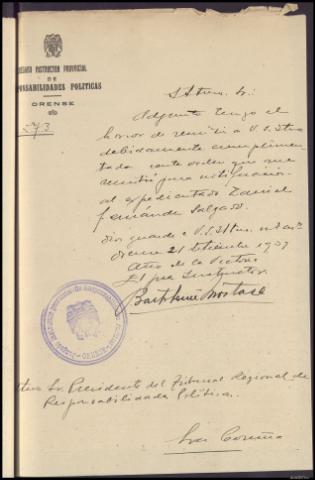 JUZGADO INSTRUCTOR PROVINCIAL
DE
RESPONSABILIDADES POLITICAS
ORENSE
273
Iltmo. Sr.:
Adjunto tengo el
honor de remitir a V.S. Iltma
debidamente cumplimen-
tada carta orden que me
remitió para notificación
al expedientado Daniel
Fernández Salgado.
Dios guarde a V.S. Iltma. m. añs
Orense 21 Setiembre 1939
Año de la Victoria
El Juez Instructor
Iltmo Sr. Presidente del Tribunal Regional de
Responsabilidades Políticas.
La Coruña